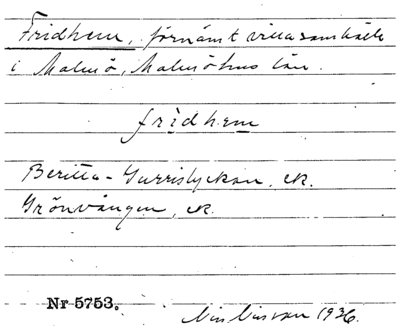 Fridhem, förnämt villasamhälle
i Malmö, Malmöhus län.
fridhem
Beritta-Gurrislyckan, ek.
Grönvången, ek.
Nr 5753.
1936.